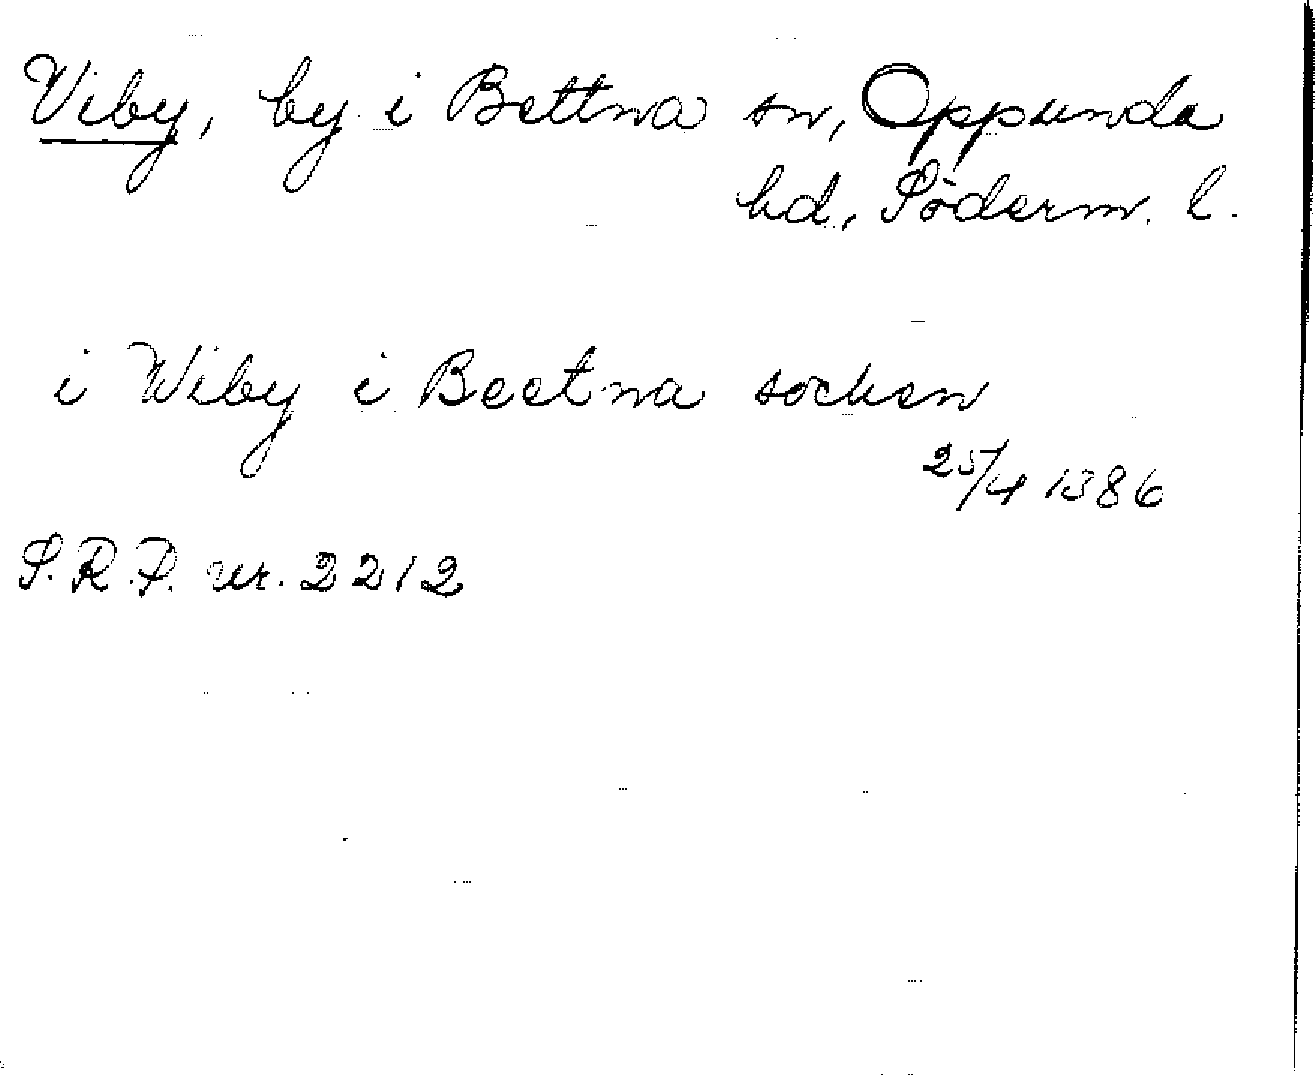 Viby, by i Bettna sn, Oppunda
hd, Söderm. l.
i Wiby i Beetna sochen
25/4 1386
S.R.P. nr. 2212